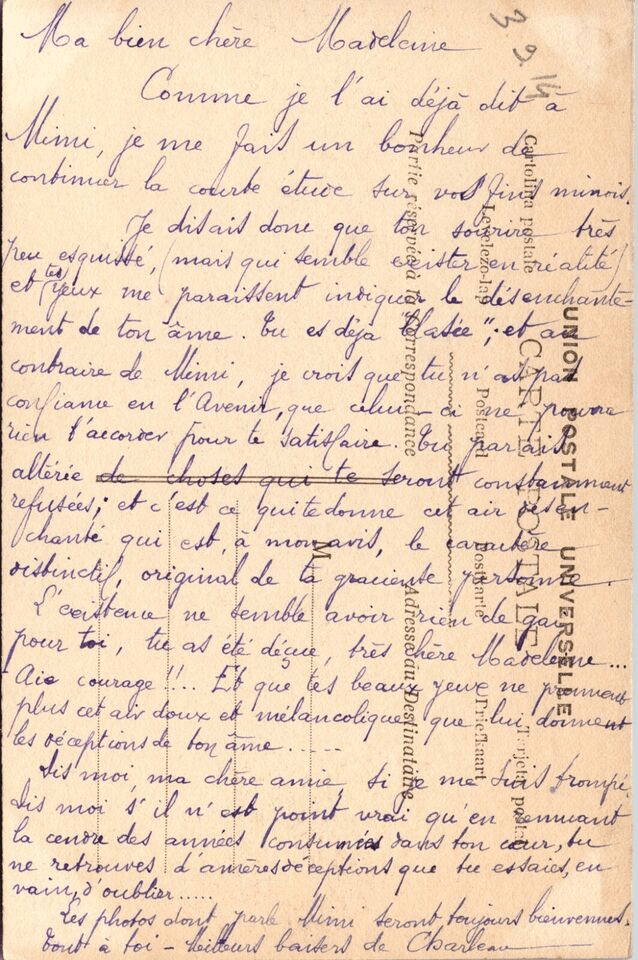 3 9 14
Ma bien chère Madeleine
Comme je l'ai déjà dit à
Mimi, je me fais un bonheur de
continuer la courte étude sur vos fins minois.
Je disais donc que ton sourire très
peu esquissé, (mais qui semble exister en réalité)
et (tes) yeux me paraissent indiquer le désenchante-
ment de ton âme. Tu es déjà "blasée"; et au
contraire de Mimi, je crois que tu n'as pas
confiance en l'Avenir, que celui-ci ne pourra
rien t'accorder pour te satisfaire. Tu parais
altérée de choses qui te seront constamment
refusées; et c'est ce qui te donne cet air désen-
chanté qui est, à mon avis, le caractère
distinctif, original de ta gracieuse personne.
L'existence ne semble avoir rien de gai
pour toi, tu as été déçue, très chère Madeleine...
Aie courage!!... Et que tes beaux yeux ne prennent
plus cet air doux et mélancolique que lui donnent
les déceptions de ton âme.....
Dis moi, ma chère amie, si je me suis trompé.
Dis moi s'il n'est point vrai qu'en remuant
la cendre des années consumées dans ton cœur, tu
ne retrouves d'amères déceptions que tu essaies, en
vain, d'oublier.....
Les photos dont parle Mimi seront toujours bienvenues.
Tout à toi - Meilleurs baisers de
UNION POSTALE UNIVERSELLE
CARTE POSTALE
Cartolina postale
Levelezo-lap
Postcard
Postkarte
Briefkaart
Tarjeta postal
Partie réservée à la Correspondance
Adresse du Destinataire
M